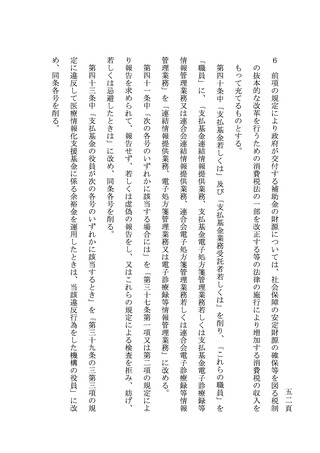 ６　前項の規定により政府が交付する補助金の財源については、社会保障の安定財源の確保等を図る税制
の抜本的な改革を行うための消費税法の一部を改正する等の法律の施行により増加する消費税の収入を
もって充てるものとする。
第四十条中「支払基金若しくは」及び「支払基金業務受託者若しくは」を削り、「これらの職員」を
「職員」に、「支払基金連結情報提供業務、支払基金電子処方箋管理業務若しくは支払基金電子診療録等
情報管理業務又は連合会連結情報提供業務、連合会電子処方箋管理業務若しくは連合会電子診療録等情報
管理業務」を「連結情報提供業務、電子処方箋管理業務又は電子診療録等情報管理業務」に改める。
第四十一条中「次の各号のいずれかに該当する場合には」を「第三十七条第一項又は第二項の規定によ
り報告を求められて、報告せず、若しくは虚偽の報告をし、又はこれらの規定による検査を拒み、妨げ、
若しくは忌避したときは」に改め、同条各号を削る。
第四十三条中「支払基金の役員が次の各号のいずれかに該当するとき」を「第三十九条の三第三項の規
定に違反して医療情報化支援基金に係る余裕金を運用したときは、当該違反行為をした機構の役員」に改
め、同条各号を削る。
五二頁